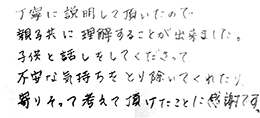 丁寧に説明して頂いたので
親子共に理解することが出来ました。
子供と話しをしてくださって
不安な気持ちをとり除いてくれたり
寄りそって考えて頂けたことに感謝です。